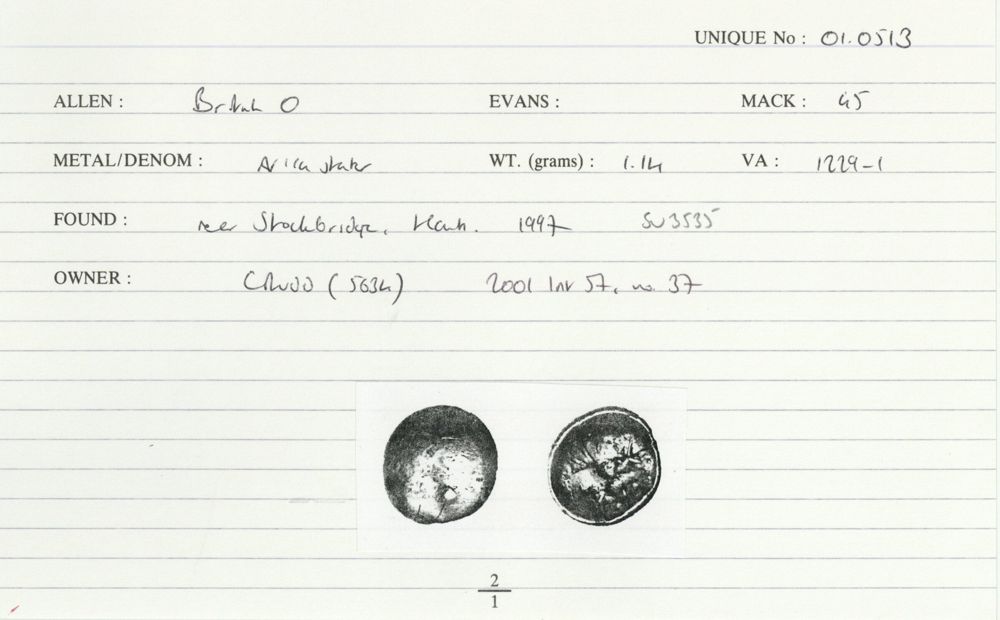 UNIQUE No : 01.0513
ALLEN : British O EVANS : MACK : 45
METAL/DENOM : AV 1/4 stater WT. (grams) : 1.14 VA : 1229-1
FOUND : near Stockbridge, Hants. 1997 SU3535
OWNER : (5634) 2001 Inv 57, no. 37
2
1